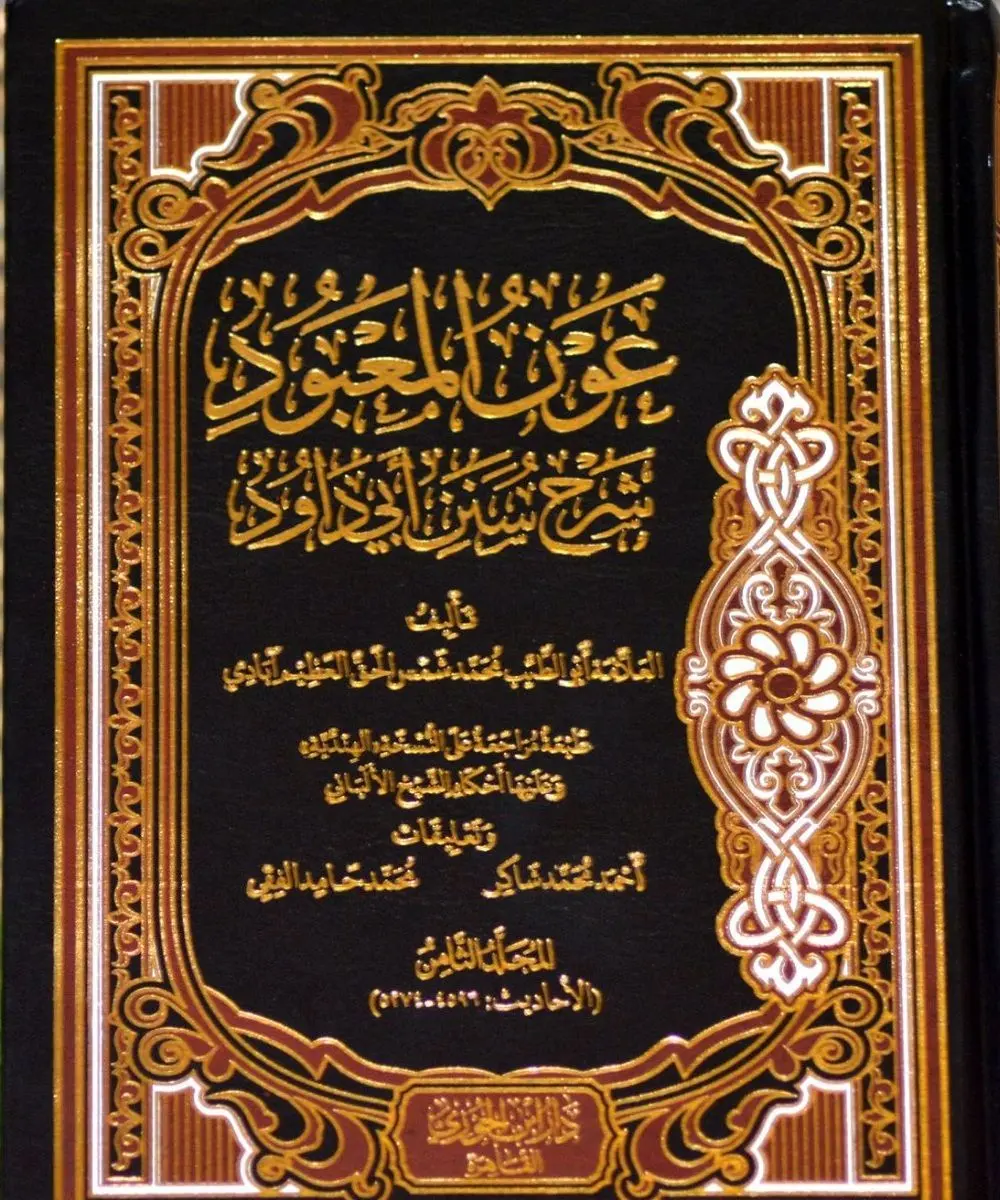 عَوْنُ المَعْبُودِ
شَرْحُ سُنَنِ أَبِي دَاوُدَ
تَأليفُ
العَلَّامَة أَبي الطَّيِّب مُحَمَّد شَمْس الحَقّ العَظِيم آبَادِي
طَبْعَةٌ مُرَاجَعَةٌ عَلَى النُّسْخَةِ «الهِنْدِيَّةِ»
وَعَلَيْهَا أَحْكَامُ الشَّيْخ الأَلْبَانِي
وَتَعْلِيقَات
أَحْمَد مُحَمَّد شَاكِر    مُحَمَّد حَامِد الفِقِي
المُجَلَّدُ الثَّامِنُ
(الأَحَادِيث: ٤٥٩٦-٥٢٧٤)
دَارُ ابْنِ الجَوْزِي
القَاهِرَة